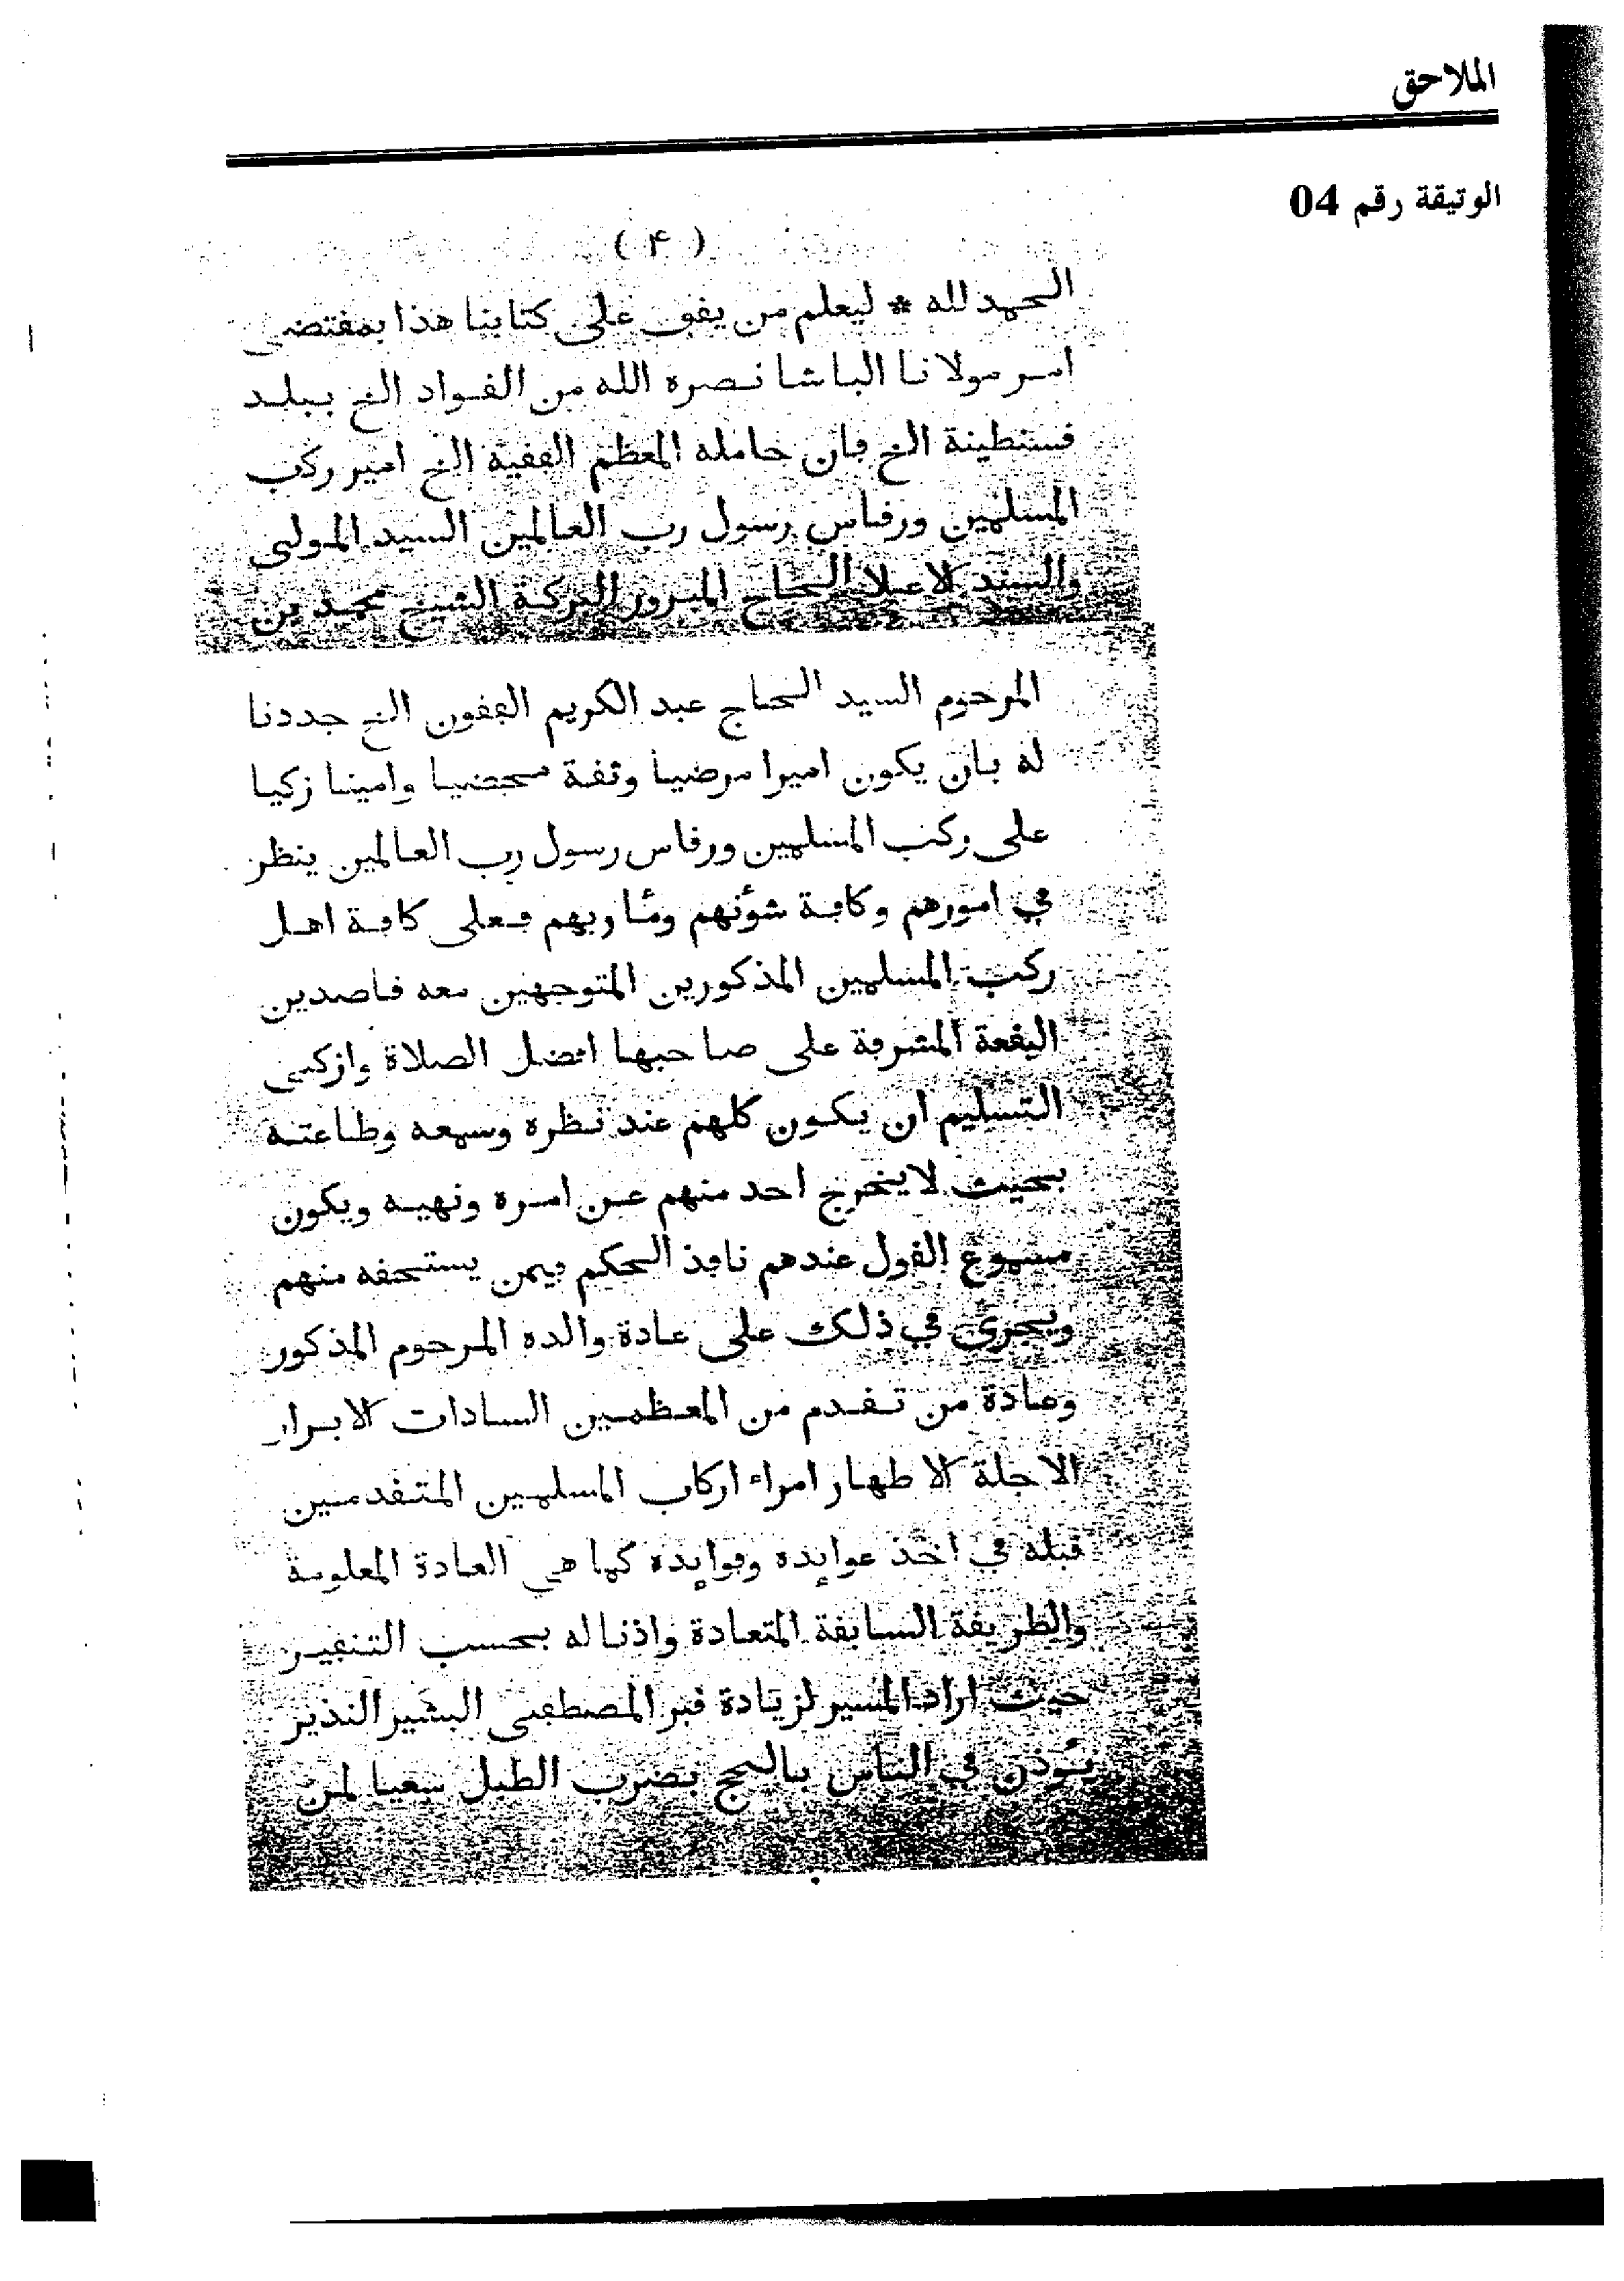 الملاحق
الوثيقة رقم 04
( ۴ )
الحمد لله * ليعلم من يقف على كتابنا هذا بمقتضى
امر مولانا الباشا نصره الله من القواد الخ ببلد
قسنطينة الخ فان حامله المعظم الفقيه الخ امير ركب
المسلمين ورقاس رسول رب العالمين السيد المولى
والسند الاعلا الحاج المبرور البركة الشيخ محمد بن
المرحوم السيد الحاج عبد الكريم الفقون الخ جددنا
له بان يكون اميرا مرضيا وثقة محضيا وامينا زكيا
على ركب المسلمين ورقاس رسول رب العالمين ينظر
في امورهم وكافة شؤنهم ومئاربهم فعلى كافة اهل
ركب المسلمين المذكورين المتوجهين معه قاصدين
البقعة المشرفة على صاحبها افضل الصلاة وازكى
التسليم ان يكون كلهم عند نظره وسمعه وطاعته
بحيث لا يخرج احد منهم عن امره ونهيه ويكون
مسموع القول عندهم نافذ الحكم فيمن يستحقه منهم
ويجرى في ذلك على عادة والده المرحوم المذكور
وعادة من تقدم من المعظمين السادات الابرار
الاجلة الاطهار امراء اركاب المسلمين المتقدمين
قبله في اخذ عوايده وفوايده كما هي العادة المعلومة
والطريقة السابقة المتعادة واذنا له بحسب التنفير
حيث اراد المسير لزيادة قبر المصطفى البشير النذير
يئوذن في الناس بالحج بضرب الطبل سعيا لمن